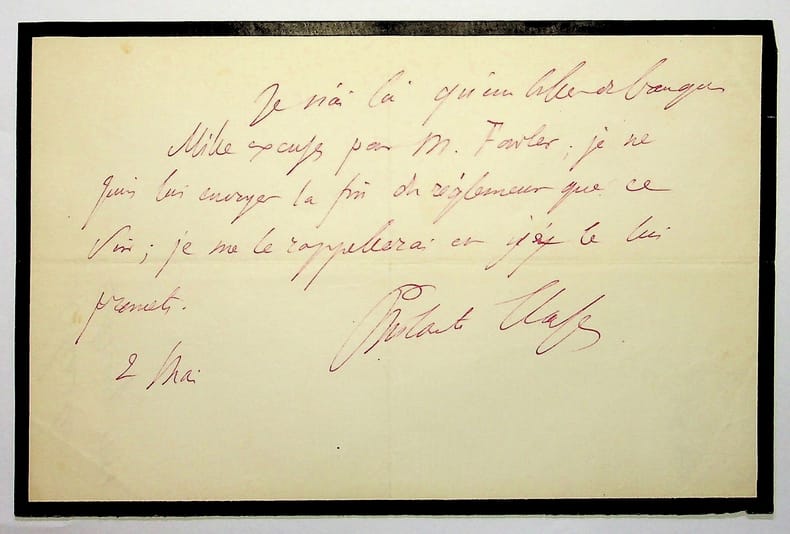 Je n'ai ici qu'un billet de banque
Mille excuses pour M. Fowler, je ne
puis lui envoyer la fin du règlement que ce
soir; je me le rappellerai et je le lui
promets.
2 Mai